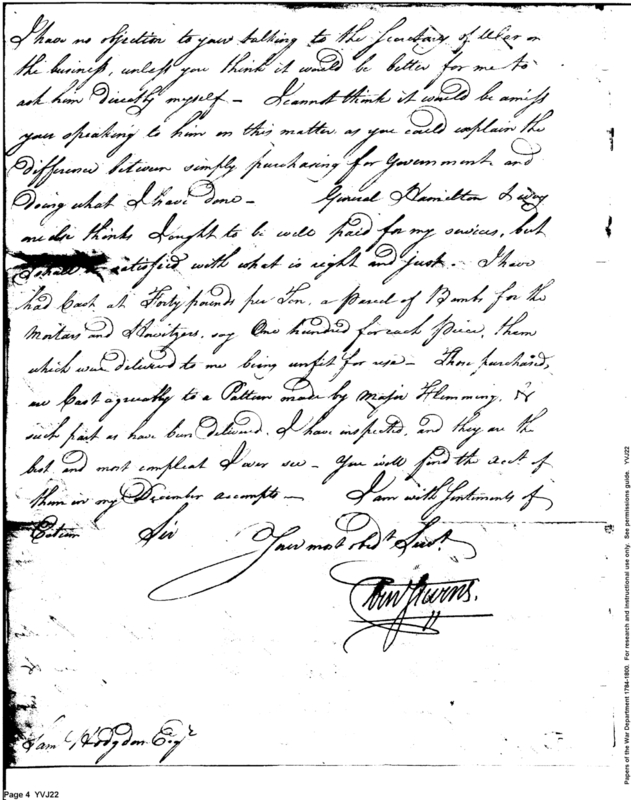 I have no objection to your talking to the Secretary of War on
the business, unless you think it would be better for me to
ask him directly myself – I cannot think it would be amiss
your speaking to him on this matter as you could explain the
difference between simply purchasing for Government and
doing what I have done – General Hamilton & every
one else thinks I ought to be well paid for my services, but
I shall be satisfied with what is right and just. I have
had Cast at Forty pounds per Ton, a Parcel of Bombs for the
Mortars and Howitzers, say One hundred for each Piece, them
which was delivered to me being unfit for use – Those purchased,
are Cast agreeably to a Pattern made by Major Flemming, &
such part as have been delivered, I have inspected, and they are the
best and most compleat I ever see – You will find the acct. of
them in my December accompts – I am with Sentiments of
Esteem Sir
Your most obedt Servt.
Eben Stevens.
Saml Hodgdon Esqr
Page 4 YVJ22
Papers of the War Department 1784-1800. For research and instructional use only. See permissions guide. YVJ22